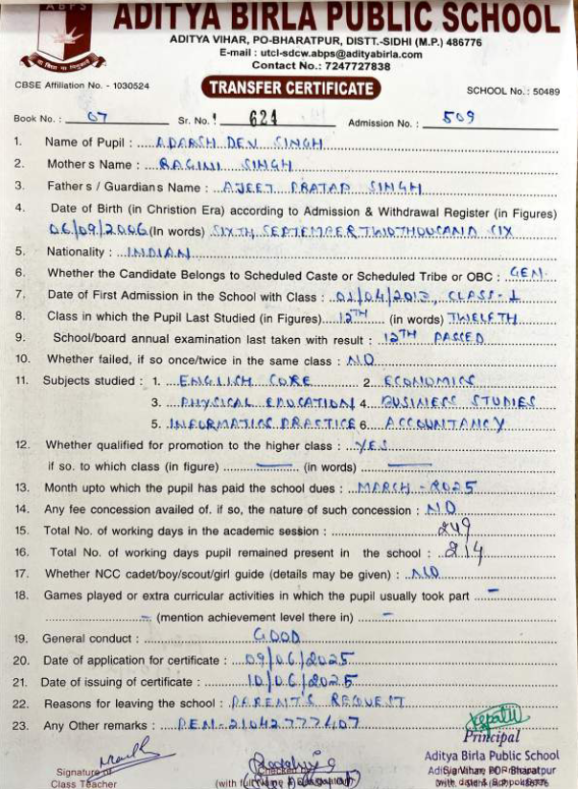 ABPS
ADITYA BIRLA PUBLIC SCHOOL
ADITYA VIHAR, PO-BHARATPUR, DISTT.-SIDHI (M.P.) 486776
E-mail : utcl-sdcw.abps@adityabirla.com
Contact No.: 7247727838
CBSE Affiliation No. - 1030524
TRANSFER CERTIFICATE
SCHOOL No. : 50489
Book No. : 07 Sr. No. ! 624 Admission No. : 509
1. Name of Pupil : ADARSH DEV SINGH
2. Mother s Name : RAGINI SINGH
3. Father s / Guardian s Name : AJEET PRATAP SINGH
4. Date of Birth (in Christion Era) according to Admission & Withdrawal Register (in Figures)
06/09/2006 (In words) SIXTH SEPTEMBER TWO THOUSAND SIX
5. Nationality : INDIAN
6. Whether the Candidate Belongs to Scheduled Caste or Scheduled Tribe or OBC : GEN.
7. Date of First Admission in the School with Class : CLASS-I
8. Class in which the Pupil Last Studied (in Figures) 12TH (in words) TWELFTH
9. School/board annual examination last taken with result : 12TH PASSED
10. Whether failed, if so once/twice in the same class : NO
11. Subjects studied : 1. ENGLISH CORE 2. ECONOMICS
3. PHYSICAL EDUCATION 4. BUSINESS STUDIES
5. INFORMATICS PRACTICE 6. ACCOUNTANCY
12. Whether qualified for promotion to the higher class : YES
if so. to which class (in figure) — (in words) —
13. Month upto which the pupil has paid the school dues : MARCH - 2025
14. Any fee concession availed of. if so, the nature of such concession : NO
15. Total No. of working days in the academic session : 249
16. Total No. of working days pupil remained present in the school : 214
17. Whether NCC cadet/boy/scout/girl guide (details may be given) : NO
18. Games played or extra curricular activities in which the pupil usually took part –
– (mention achievement level there in) –
19. General conduct : GOOD
20. Date of application for certificate : 09/06/2025
21. Date of issuing of certificate : 10/06/2025
22. Reasons for leaving the school : PARENT'S REQUEST
23. Any Other remarks : PEN-21042777407
Principal
Aditya Birla Public School
Signature of
Class Teacher